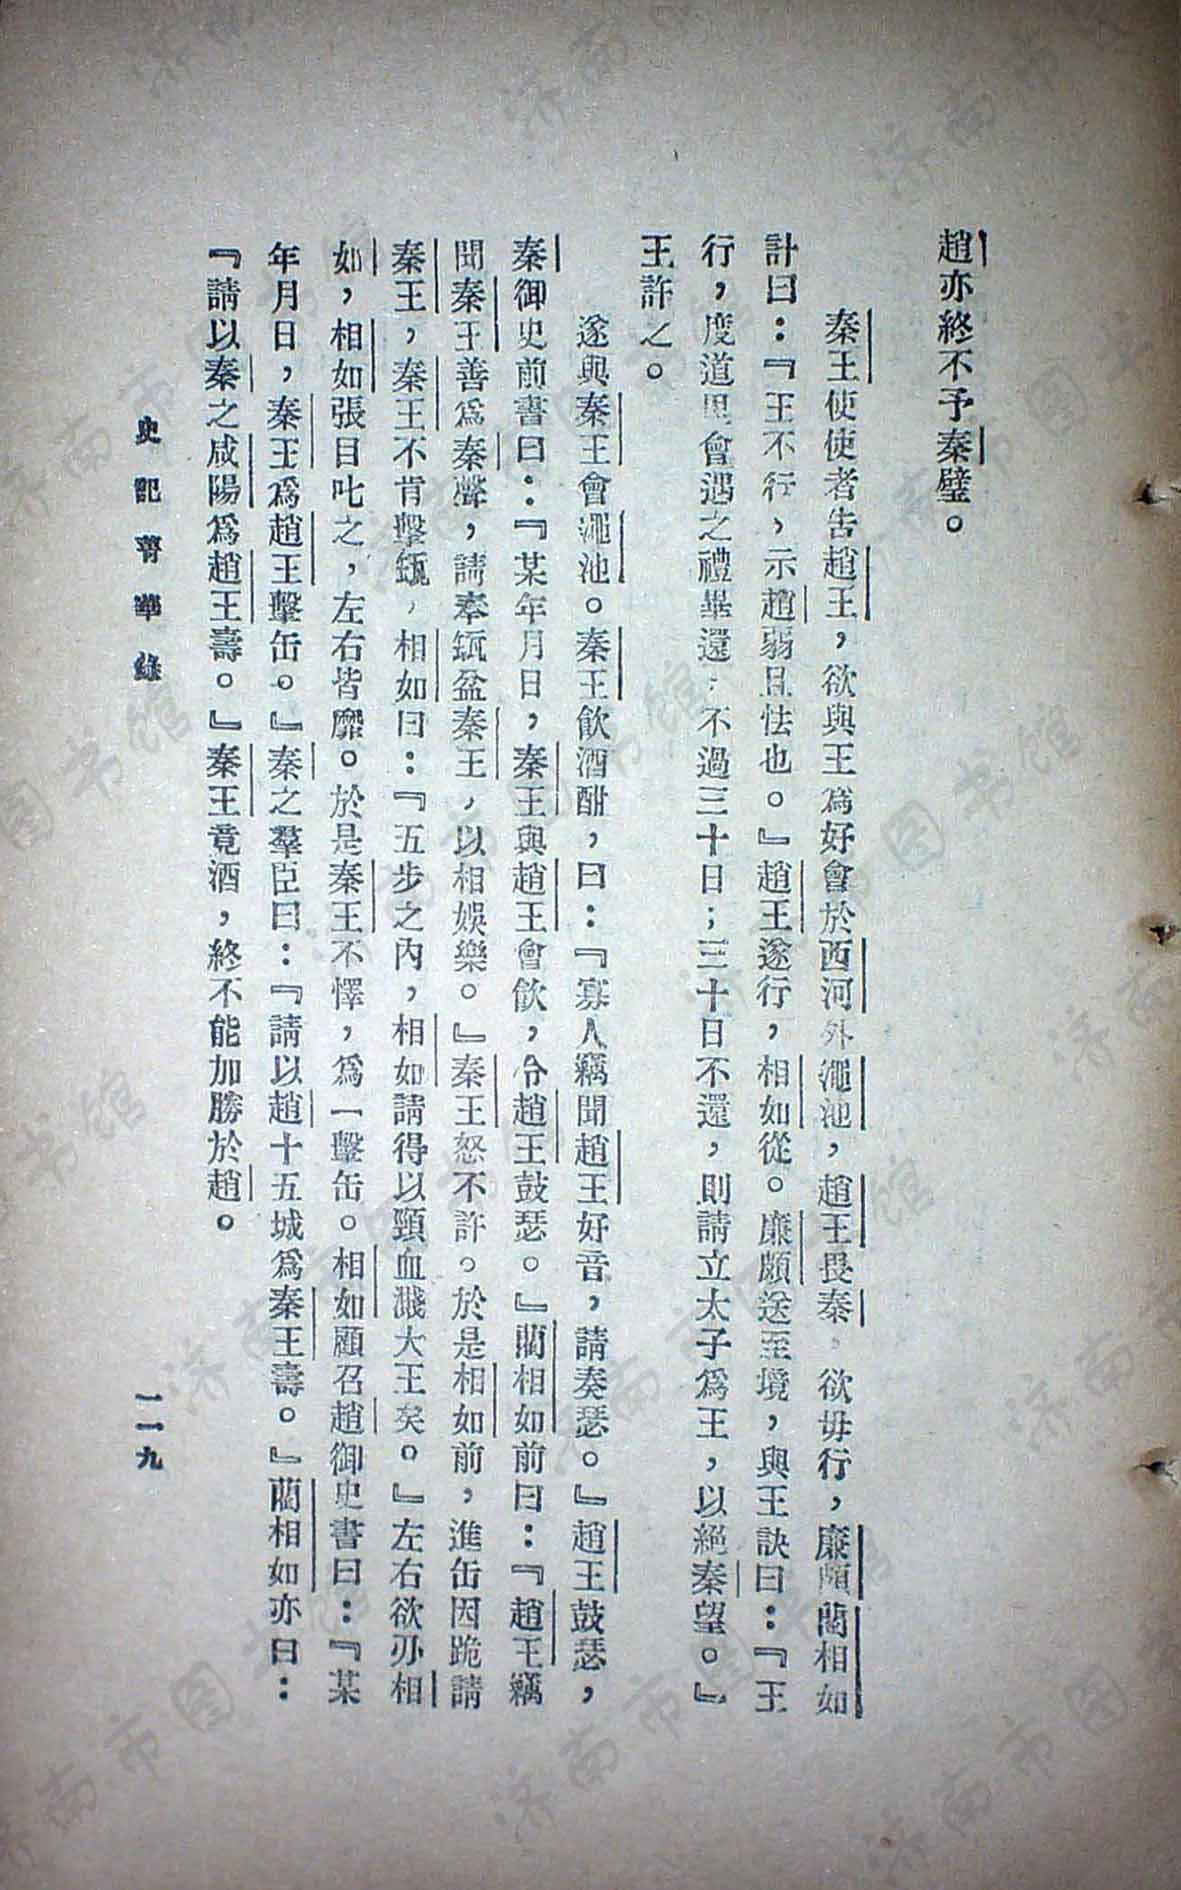 趙亦終不予秦璧。
秦王使使者吿趙王，欲與王爲好會於西河外澠池，趙王畏秦，欲毋行，廉頗藺相如
計曰：『王不行，示趙弱且怯也。』趙王遂行，相如從。廉頗送至境，與王訣曰：『王
行，度道里會遇之禮畢還，不過三十日；三十日不還，則請立太子爲王，以絕秦望。』
王許之。
遂與秦王會澠池。秦王飮酒酣，曰：『寡人竊聞趙王好音，請奏瑟。』趙王鼓瑟，
秦御史前書曰：『某年月日，秦王與趙王會飮，令趙王鼓瑟。』藺相如前曰：『趙王竊
聞秦王善爲秦聲，請奉缻盆秦王，以相娛樂。』秦王怒不許。於是相如前，進缶因跪請
秦王，秦王不肯擊缻，相如曰：『五步之內，相如請得以頸血濺大王矣。』左右欲刃相
如，相如張目叱之，左右皆靡。於是秦王不懌，爲一擊缶。相如顧召趙御史書曰：『某
年月日，秦王爲趙王擊缶。』秦之羣臣曰：『請以趙十五城爲秦王壽。』藺相如亦曰：
『請以秦之咸陽爲趙王壽。』秦王竟酒，終不能加勝於趙。
史記菁華錄
一一九
济南市图书馆